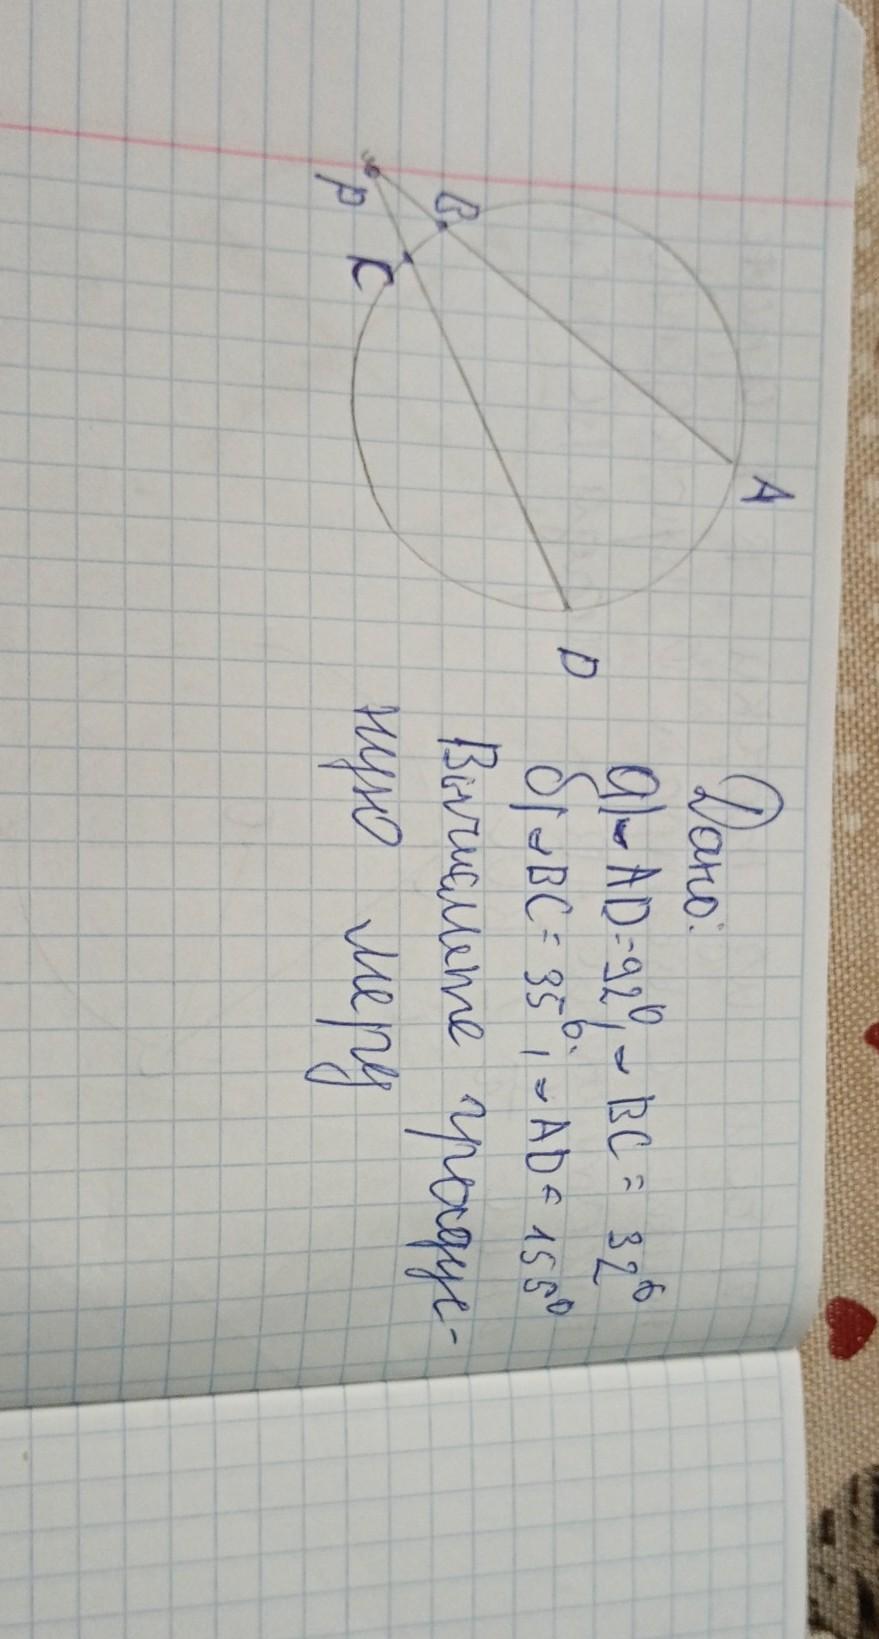 A
B
P
C
D
Дано:
а) ◡AD=92⁰, ◡BC = 32⁰
б) ◡BC = 35⁰, ◡AD = 155⁰
Вычислите градус-
ную меру